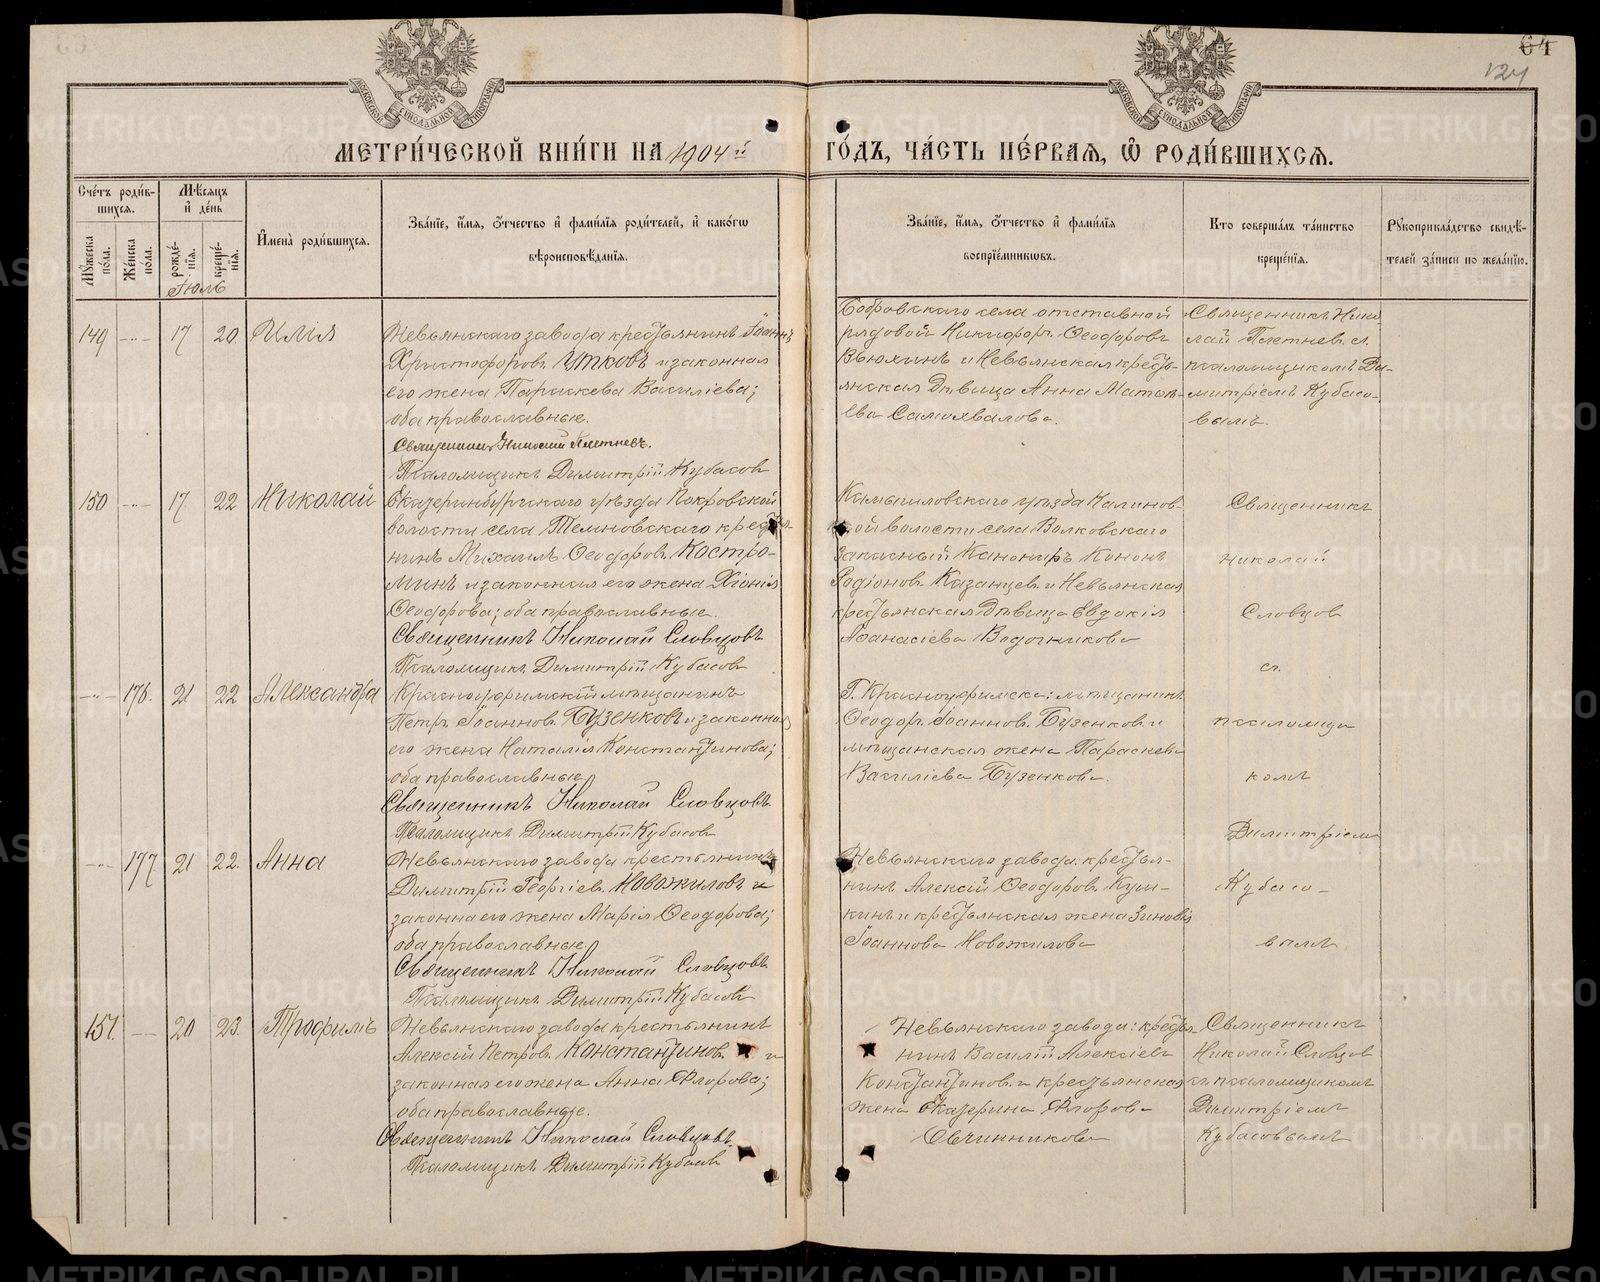 64
124
МЕТРИ́ЧЕСКОЙ КНИ́ГИ НА 1904й ГО́ДЪ, ЧА́СТЬ ПЕ́РВАѦ, Ѽ РОДИ́ВШИХСѦ.
Счéтъ роди́вшихсѧ.
Мꙋ́жеска по́ла.
Же́нска по́ла.
Мѣ́сѧцъ и҆ де́нь
рожде́нїѧ.
креще́нїѧ.
И҆мена̀ роди́вшихсѧ.
Зва́нїе, и҆́мѧ, ѻ҆́тчество и҆ фами́лїѧ роди́телей, и҆ како́гѡ
вѣроисповѣ́данїѧ.
Зва́нїе, и҆́мѧ, ѻ҆́тчество и҆ фами́лїѧ
воспрїе́мникѡвъ.
Кто соверша́лъ та́инство
креще́нїѧ.
Рꙋкоприкла́дство свидѣ́-
телей за́писи по жела́нїю.
Іюль
149 -"- 17 20. Илія
Невьянскаго завода крестьянинъ Іоаннъ
Христофоровъ Утковъ и законная
его жена Параскева Василіева;
оба православные.
Священникъ Николай Плетневъ.
Псаломщикъ Димитрій Кубасовъ
Бобровскаго села отставной
рядовой Никифоръ Ѳеодоровъ
Вьюхинъ и Невьянская кресть-
янская дѣвица Анна Матѳі-
ева Самохвалова.
Священникъ Нико-
лай Плетневъ съ
псаломщикомъ Ди-
митріемъ Кубасо-
вымъ.
150 -"- 17. 22 Николай
Екатеринбургскаго уѣзда Покровской
волости села Темновскаго крестья-
нинъ Михаилъ Ѳеодоровъ Костро-
минъ и законная его жена Хіонія
Ѳеодорова; оба православные.
Священникъ Николай Словцовъ
Псаломщикъ Димитрій Кубасовъ
Камышловскаго уѣзда Калинов-
ской волости села Волковскаго
запасный канониръ Кононъ
Родіоновъ Казанцевъ и Невьянская
крестьянская дѣвица Евдокія
Аѳанасіева Водочникова
Священникъ
Николай
Словцов
съ
псаломщи
комъ
Димитріем
Кубасо-
вымъ
-"- 176. 21 22 Александра
Красноуфимскій мѣщанинъ
Петръ Іоанновъ Бузенковъ и законная
его жена Наталія Константинова;
оба православные
Священникъ Николай Словцовъ
Псаломщикъ Димитрій Кубасовъ
Г. Красноуфимска: мѣщанинъ
Ѳеодоръ Іоанновъ Бузенковъ и
мѣщанская жена Параскева
Василіева Бузенкова.
-"- 177. 21 22. Анна
Невьянскаго завода крестьянинъ
Димитрій Георгіевъ Новожиловъ и
законна его жена Марія Ѳеодорова;
оба православные
Священникъ Николай Словцовъ
Псаломщикъ Димитрій Кубасовъ
Невьянскаго завода: крестья-
нинъ Алексій Ѳеодоровъ Куш-
кинъ и крестьянская жена Зиновія
Іоаннова Новожилова
151. -- 20 23. Трофимъ
Невьянскаго завода крестьянинъ
Алексій Петровъ Константиновъ и
законная его жена Анна Флорова;
оба православные.
Священникъ Николай Словцовъ.
Псаломщикъ Димитрій Кубасовъ
Невьянскаго завода: крестья
нинъ Василій Алексіевъ
Константиновъ и крестьянская
жена Екатерина Флорова
Овчинникова
Священникъ
Николай Словцов
съ псаломщикомъ
Димитріемъ
Кубасовымъ
METRIKI.GASO-URAL.RU